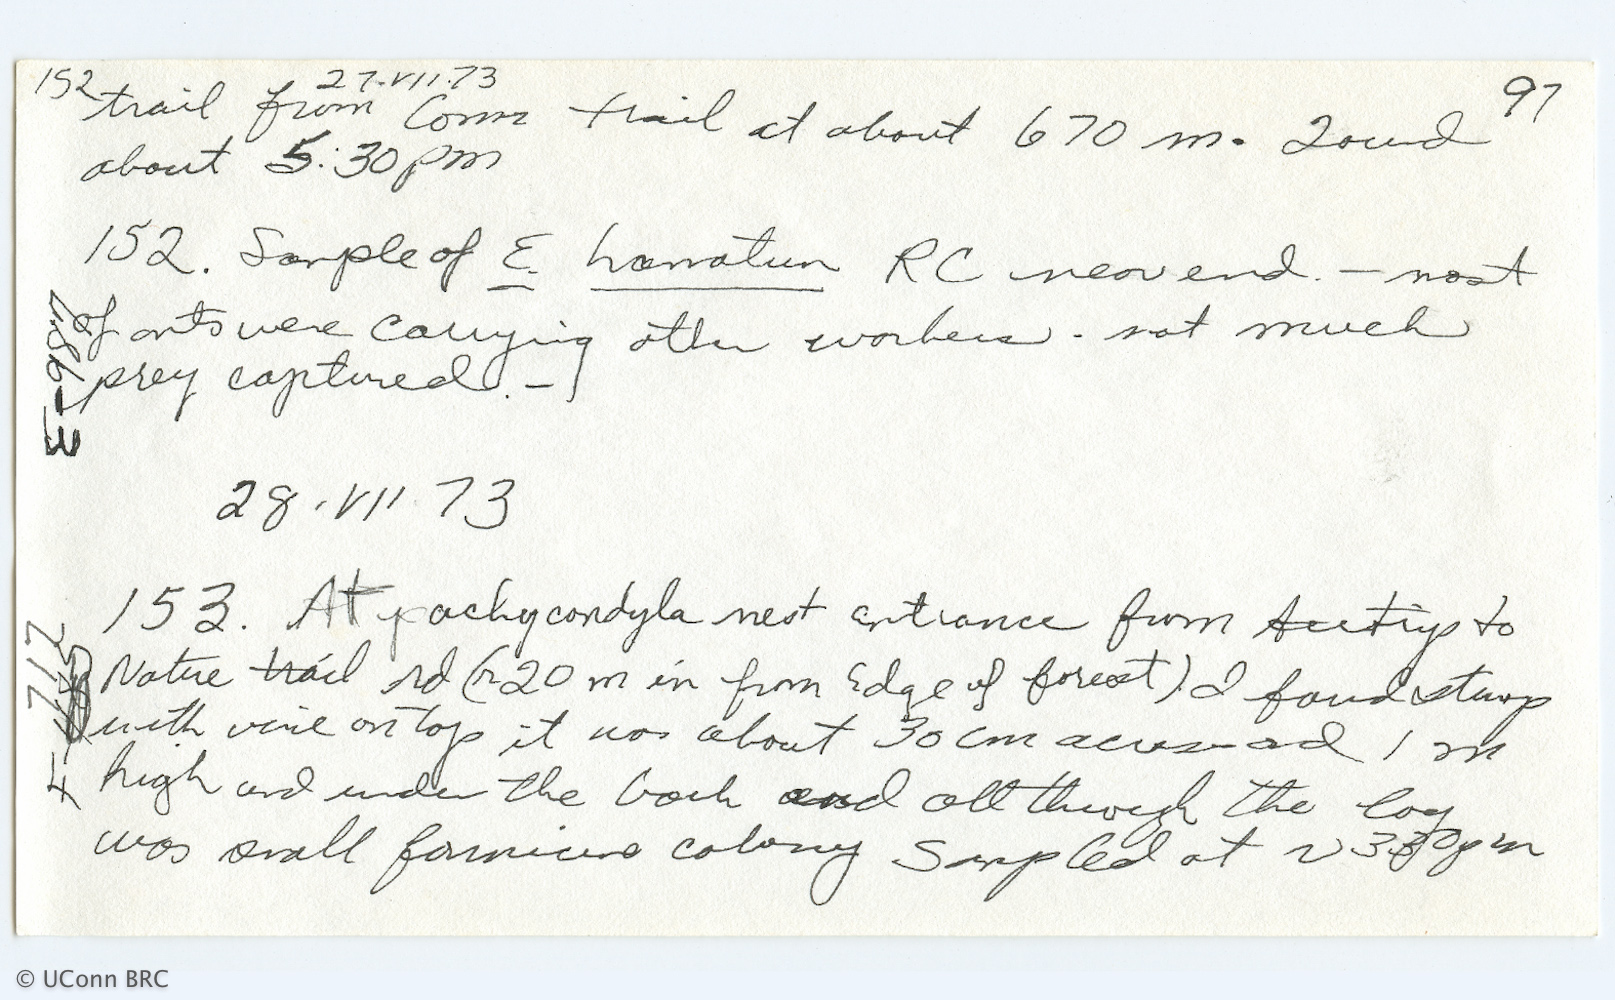 152 27.VII.73 97
trail from Conn trail at about 670 m. Found
about 5:30 pm
152. Sample of E. hamatum RC near end. – most
of ants were carrying other workers. - not much
prey captured. –
28.VII.73
153. At pachycondyla nest entrance from to
Nature trail rd (~20 m in from Edge of forest). I found stump
with vine on top it was about 30 cm across and 1 m
high and under the bark and all through the log
was small formicine colony Sampled at ~ 3:30 pm
4886-3
4-717
© UConn BRC